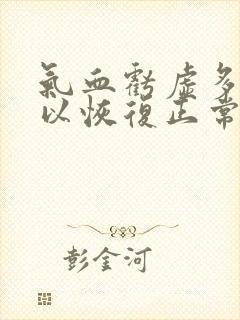 氣血虧虛多
以恢復正常
彭金河